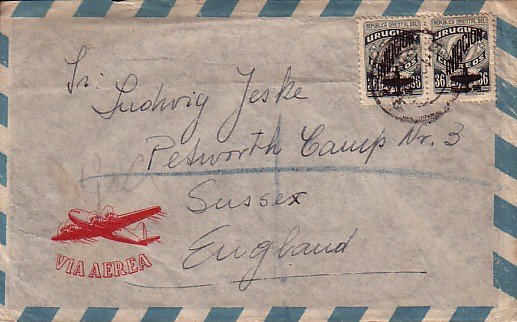 REPUBLICA ORIENTAL DEL URUGUAY
REPUBLICA ORIENTAL DEL URUGUAY
36 36
Sr.
Ludwig Jeske
Petworth Camp Nr. 3
Sussex
England
VIA AEREA